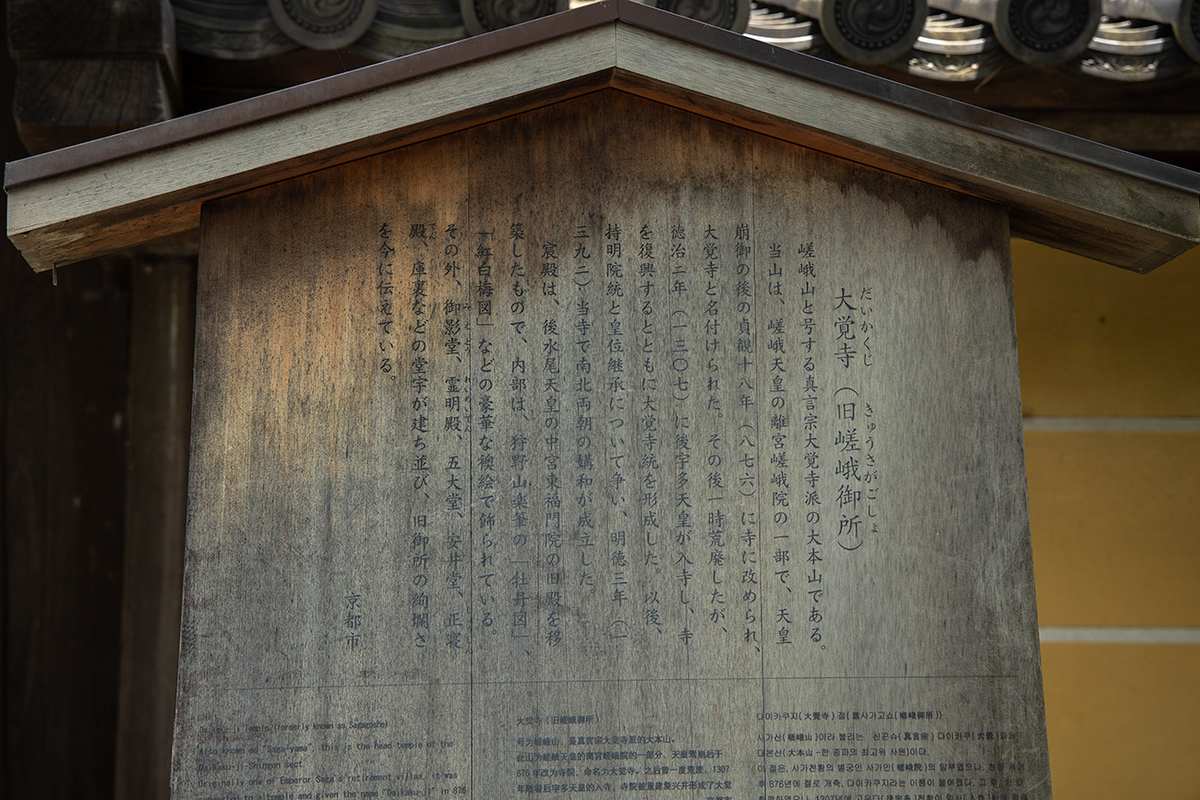 だいかくじ きゅうさがごしょ
大覚寺（旧嵯峨御所）
嵯峨山と号する真言宗大覚寺派の大本山である。
当山は、嵯峨天皇の離宮嵯峨院の一部で、天皇
崩御の後の貞観十八年（八七六）に寺に改められ、
大覚寺と名付けられた。その後一時荒廃したが、
徳治二年（一三〇七）に後宇多天皇が入寺し、寺
を復興するとともに大覚寺統を形成した。以後、
持明院統と皇位継承について争い、明徳三年（一
三九二）当寺で南北両朝の媾和が成立した。
宸殿は、後水尾天皇の中宮東福門院の旧殿を移
築したもので、内部は、狩野山楽筆の「牡丹図」、
「紅白梅図」などの豪華な襖絵で飾られている。
その外、御影堂、霊明殿、五大堂、安井堂、正寝
殿、庫裏などの堂宇が建ち並び、旧御所の絢爛さ
を今に伝えている。
京都市
Daikaku-ji Temple (formerly known as Sagagosho)
Also known as "Saga-yama", this is the head temple of the
Daikaku-ji-Shingon sect.
Originally one of Emperor Saga's retirement villas, it was
converted to a temple and given the name "Daikaku-ji" in 876
大觉寺（旧嵯峨御所）
号为嵯峨山，是真言宗大觉寺派的大本山。
此山为嵯峨天皇的离宫嵯峨院的一部分，天皇驾崩后于
876年改为寺院，命名为大觉寺。之后曾一度荒废，1307
年随着后宇多天皇的入寺，寺院被重建复兴并形成了大觉
다이카쿠지(大覺寺) 절(舊사가고쇼(嵯峨御所))
사가산(嵯峨山)이라 불리는 신곤슈(真言宗) 다이카쿠(大覺)
대본산(大本山-한 종파의 최고위 사원)이다.
이 절은, 사가천황의 별궁인 사가인(嵯峨院)의 일부였으나, 천황
후 876년에 절로 개축, 다이카쿠지라는 이름이 붙여졌다. 그 후,